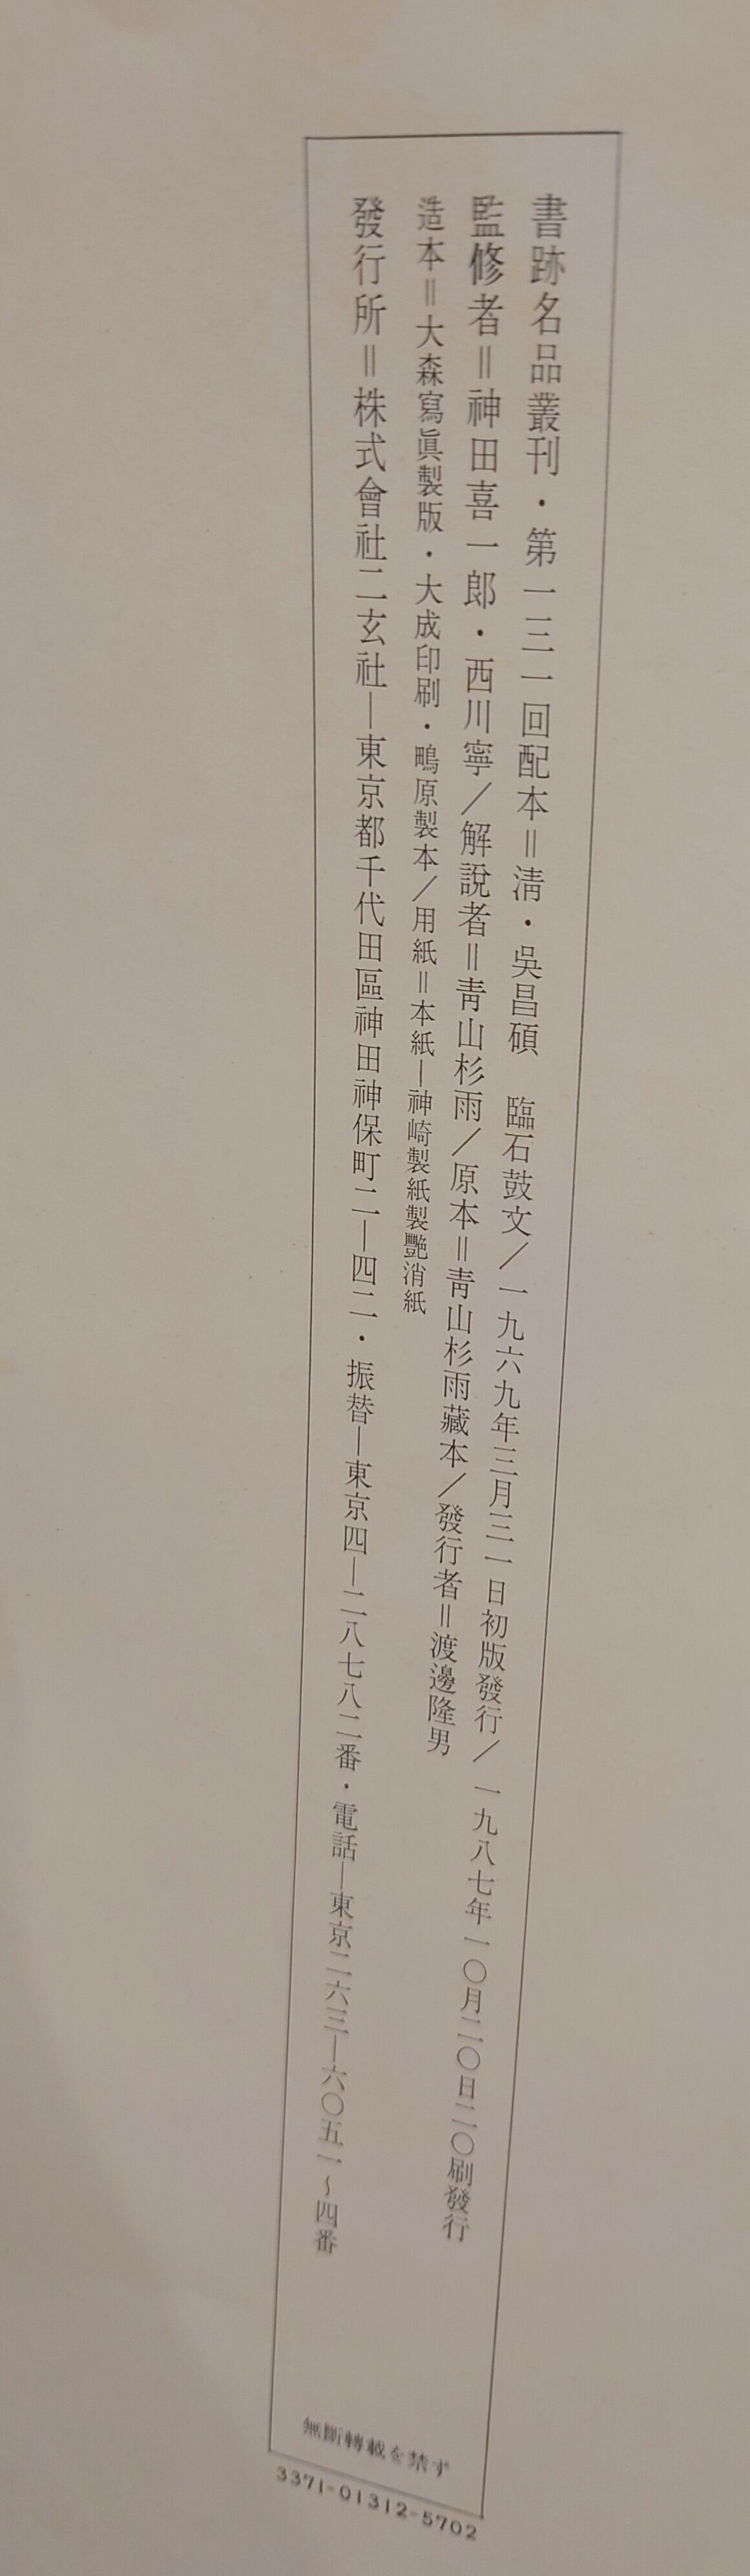 書跡名品叢刊・第一三一回配本＝淸・吳昌碩　臨石鼓文／一九六九年三月三一日初版發行／一九八七年一〇月二〇日二〇刷發行
監修者＝神田喜一郎・西川寧／解說者＝靑山杉雨／原本＝靑山杉雨藏本／發行者＝渡邊隆男
造本＝大森寫眞製版・大成印刷・鴫原製本／用紙＝本紙—神崎製紙製艷消紙
發行所＝株式會社二玄社—東京都千代田區神田神保町二—四二・振替—東京四—二八七八二番・電話—東京二六三—六〇五一〜四番
無斷轉載を禁ず
3371-01312-5702